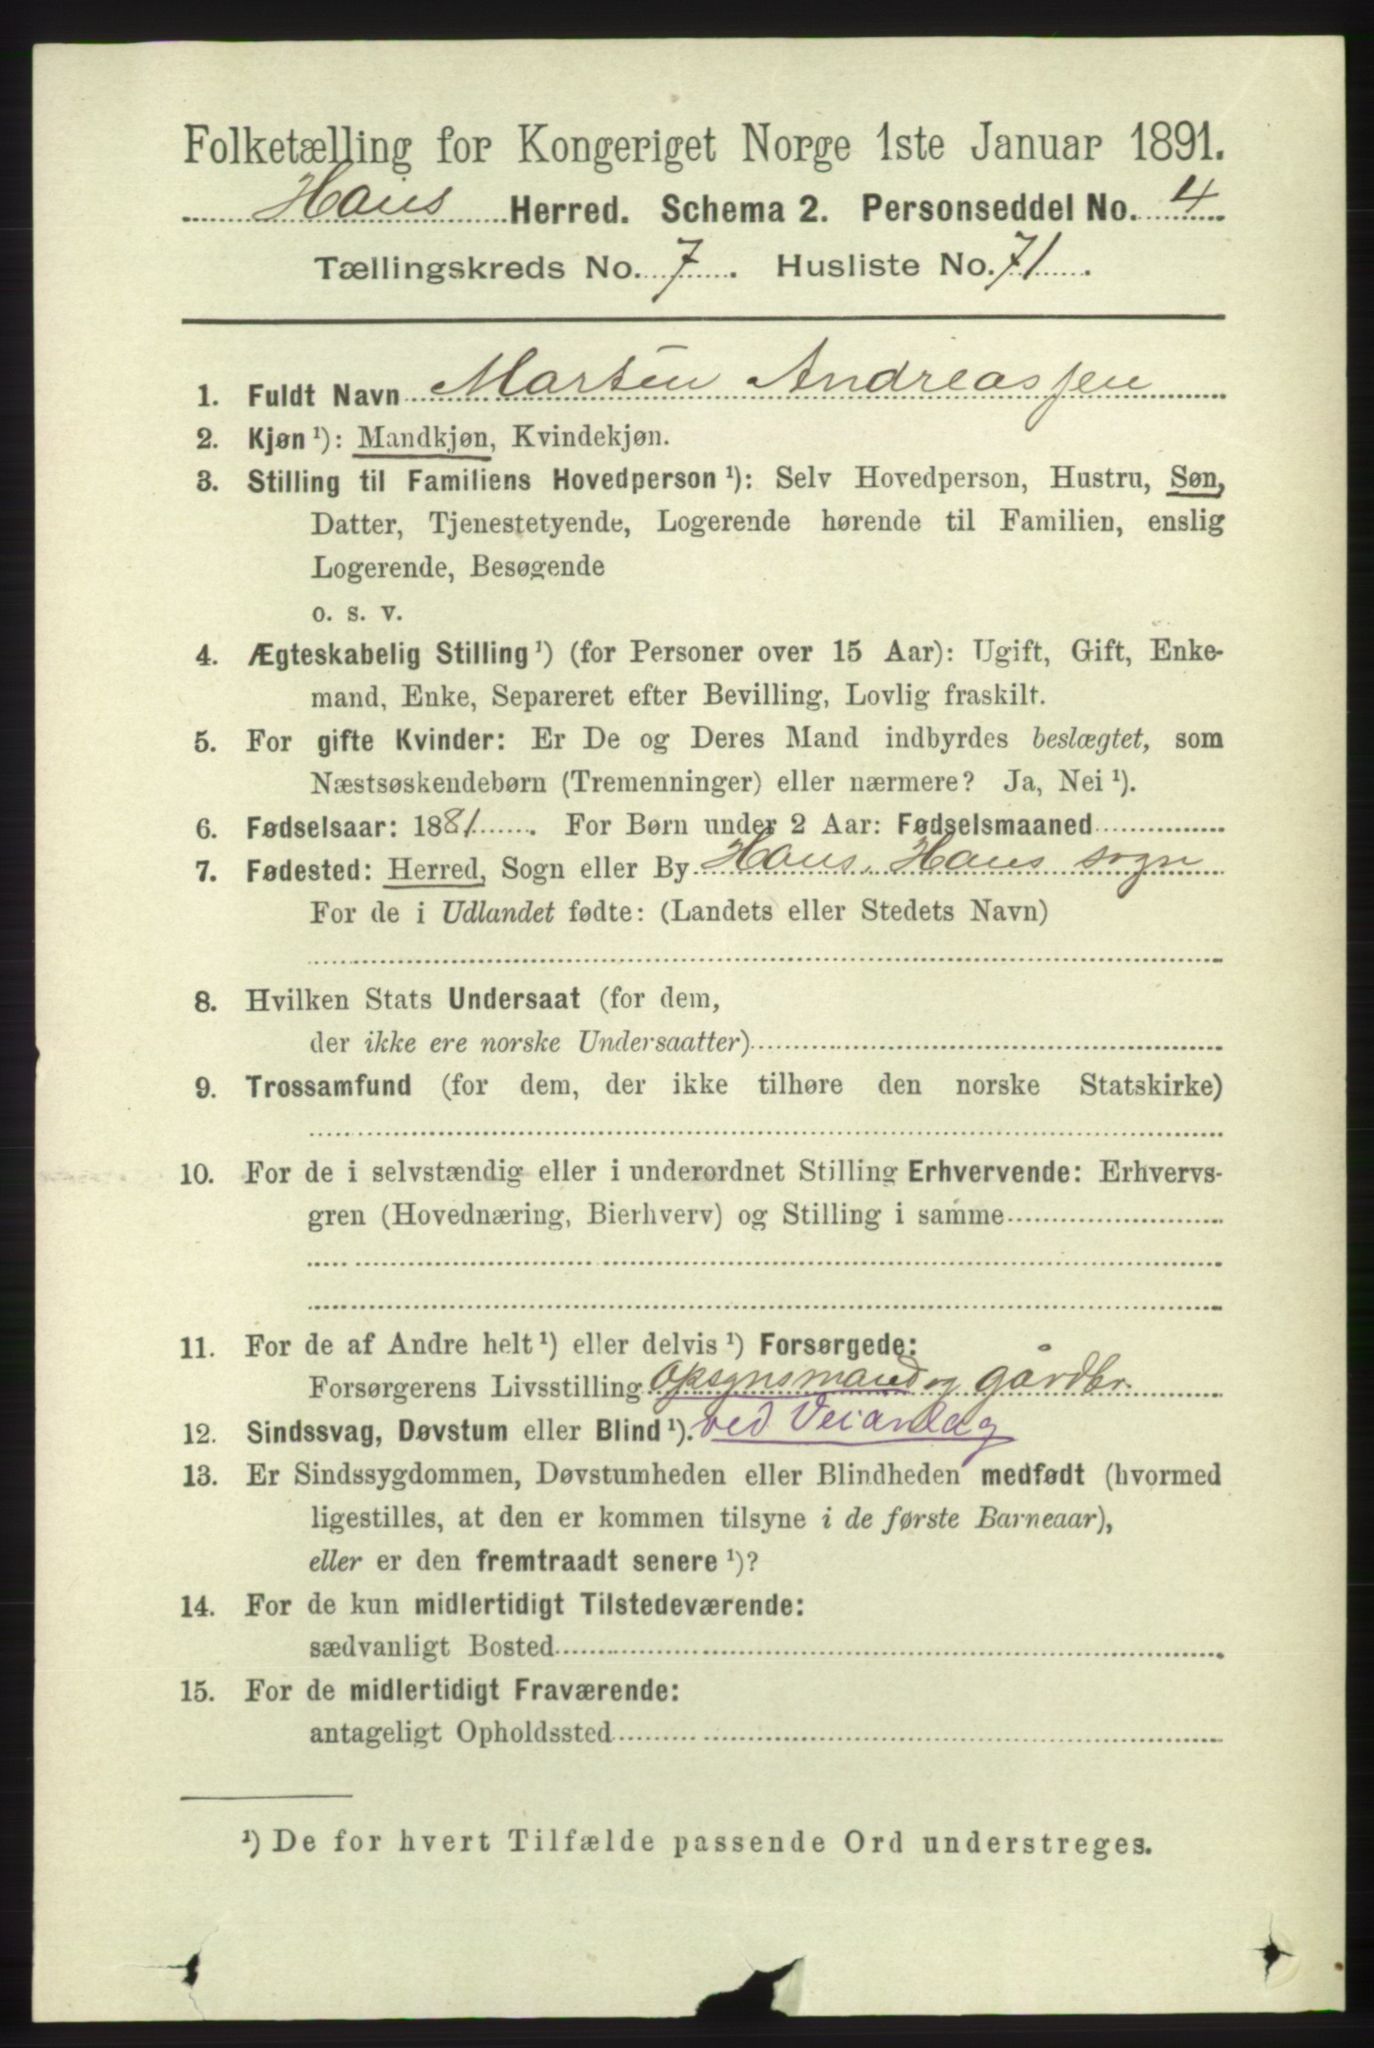 Folketælling for Kongeriget Norge 1ste Januar 1891.
Haus Herred. Schema 2. Personseddel No. 4
Tællingskreds No. 7. Husliste No. 71.
1. Fuldt Navn Martin Andreassen
2. Kjøn ¹): Mandkjøn, Kvindekjøn.
3. Stilling til Familiens Hovedperson ¹): Selv Hovedperson, Hustru, Søn,
Datter, Tjenestetyende, Logerende hørende til Familien, enslig
Logerende, Besøgende
o. s. v.
4. Ægteskabelig Stilling ¹) (for Personer over 15 Aar): Ugift, Gift, Enke-
mand, Enke, Separeret efter Bevilling, Lovlig fraskilt.
5. For gifte Kvinder: Er De og Deres Mand indbyrdes beslægtet, som
Næstsøskendebørn (Tremenninger) eller nærmere? Ja, Nei ¹).
6. Fødselsaar: 1881. For Børn under 2 Aar: Fødselsmaaned
7. Fødested: Herred, Sogn eller By Haus, Haus sogn
For de i Udlandet fødte: (Landets eller Stedets Navn)
8. Hvilken Stats Undersaat (for dem,
der ikke ere norske Undersaatter)
9. Trossamfund (for dem, der ikke tilhøre den norske Statskirke)
10. For de i selvstændig eller i underordnet Stilling Erhvervende: Erhvervs-
gren (Hovednæring, Bierhverv) og Stilling i samme
11. For de af Andre helt ¹) eller delvis ¹) Forsørgede:
Forsørgerens Livsstilling opsynsmand og gårdbr.
12. Sindssvag, Døvstum eller Blind ¹). ved Veianlæg
13. Er Sindssygdommen, Døvstumheden eller Blindheden medfødt (hvormed
ligestilles, at den er kommen tilsyne i de første Barneaar),
eller er den fremtraadt senere ¹)?
14. For de kun midlertidigt Tilstedeværende:
sædvanligt Bosted
15. For de midlertidigt Fraværende:
antageligt Opholdssted
¹) De for hvert Tilfælde passende Ord understreges.